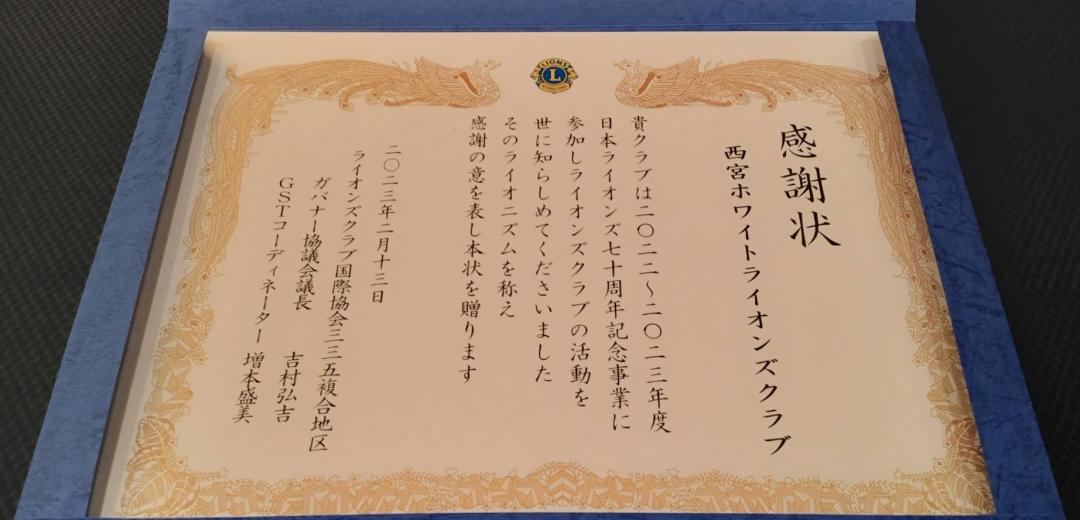 感謝状
西宮ホワイトライオンズクラブ
貴クラブは二〇二二～二〇二三年度
日本ライオンズ七十周年記念事業に
参加しライオンズクラブの活動を
世に知らしめてくださいました
そのライオニズムを称え
感謝の意を表し本状を贈ります
二〇二三年二月十三日
ライオンズクラブ国際協会三三五複合地区
ガバナー協議会議長 吉村弘吉
GSTコーディネーター 増本盛美
LIONS
L